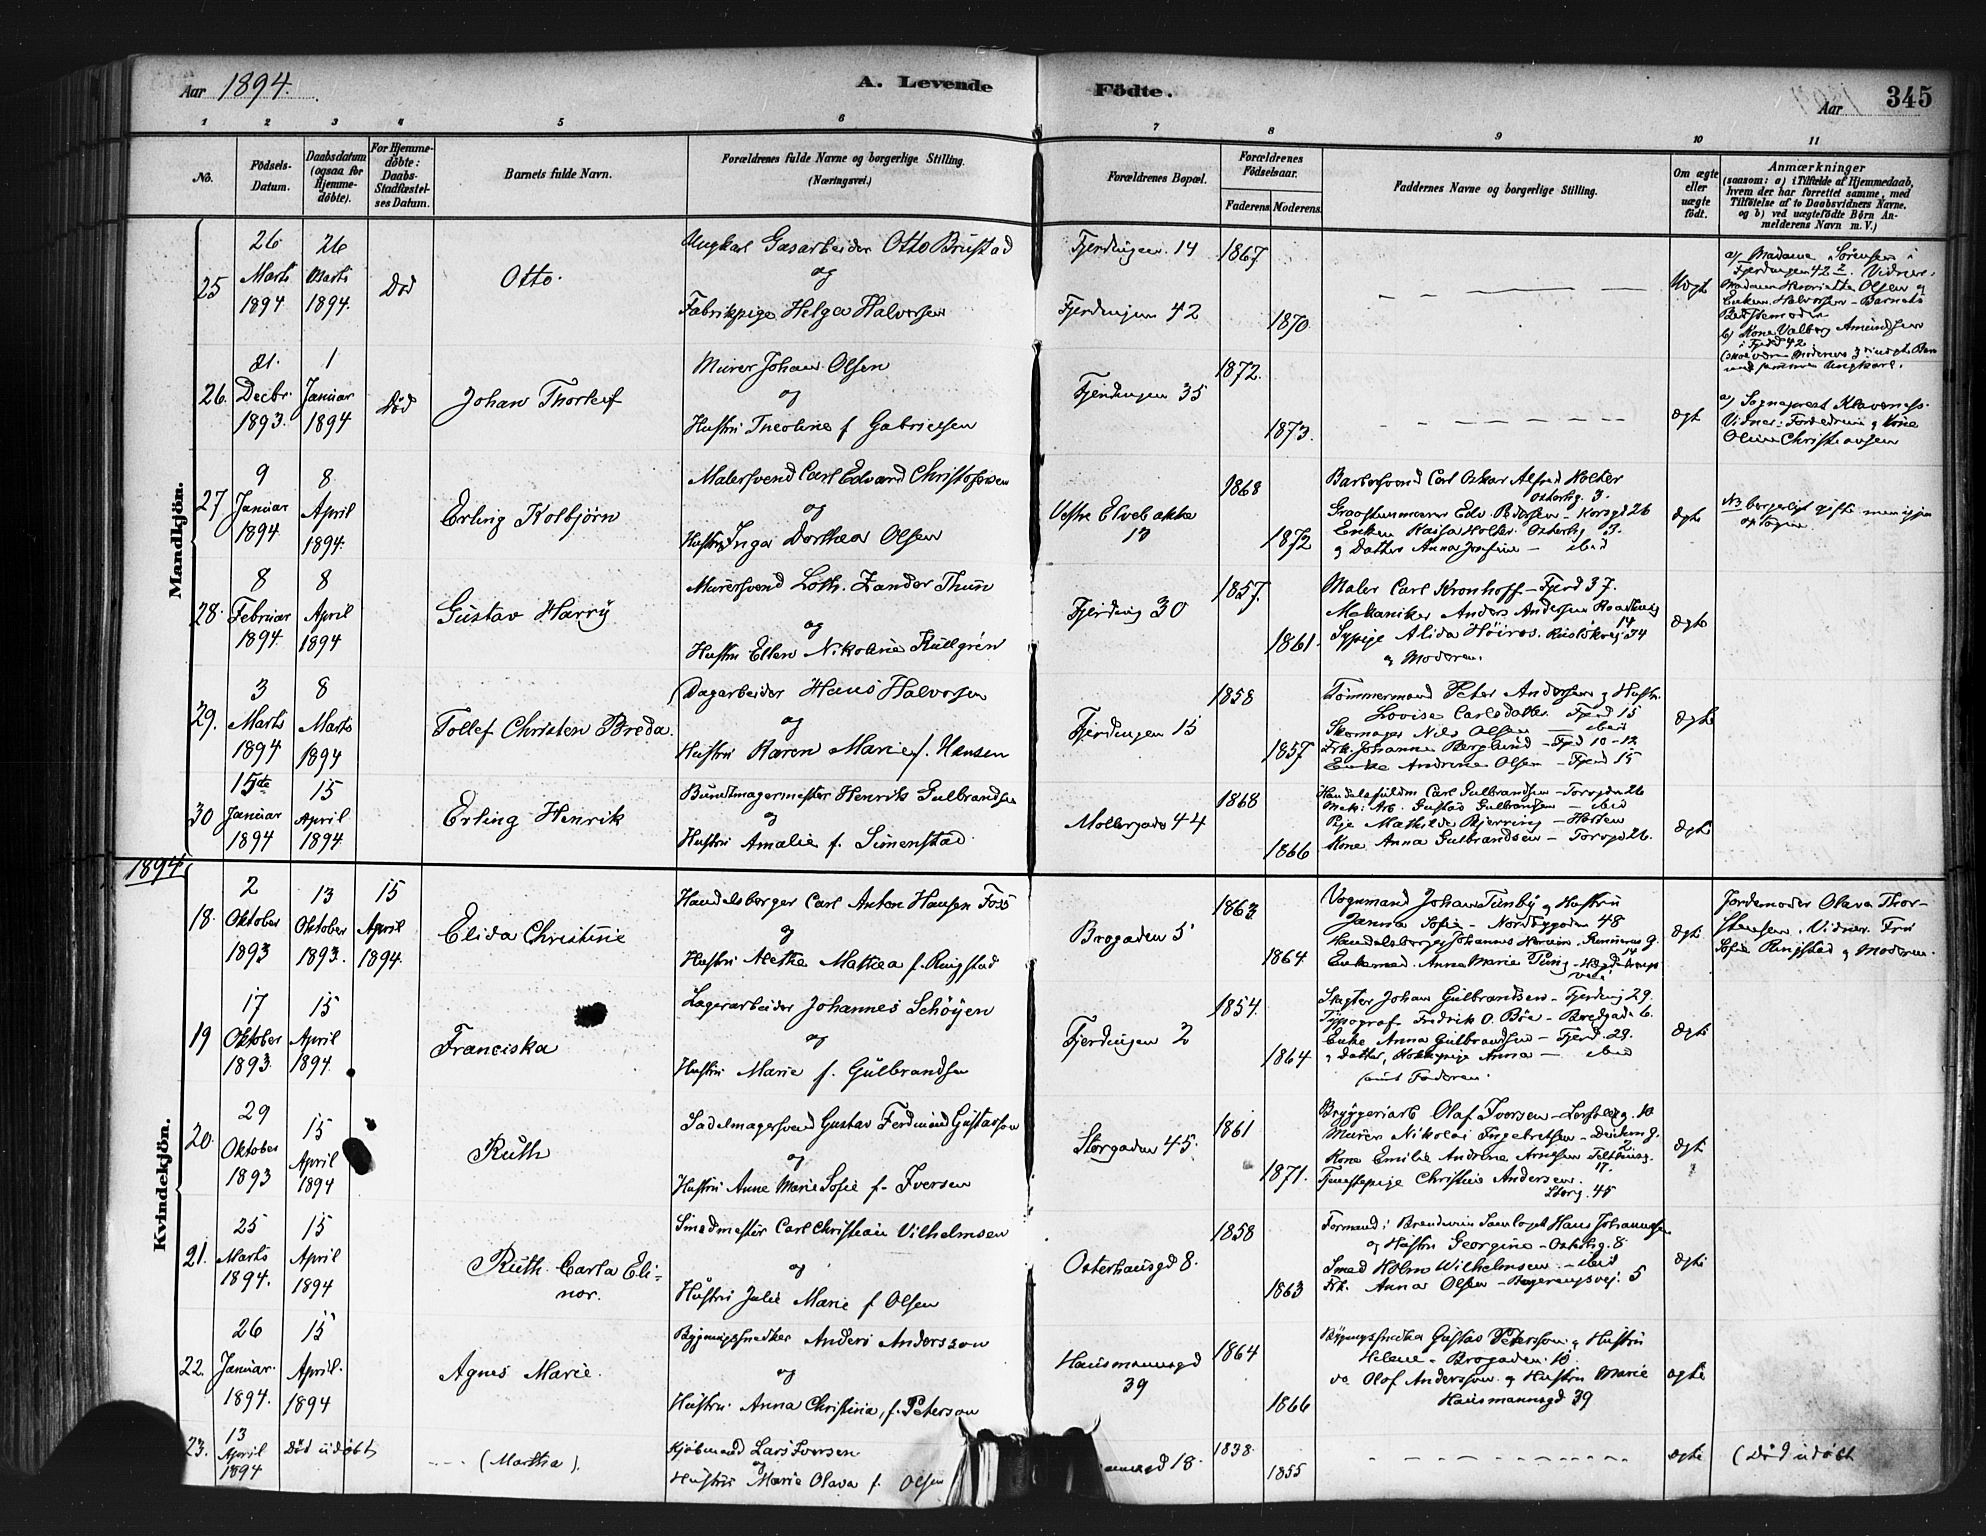 Aar 1894.
A. Levende Födte.
Aar
345
1 2 3 4 5 6 7 8 9 10 11
No.
Födsels-Datum.
Daabsdatum (ogsaa for Hjemme-döbte).
For Hjemme-döbte: Daabs-Stadfæstel-ses Datum.
Barnets fulde Navn.
Forældrenes fulde Navne og borgerlige Stilling. (Næringsvei.)
Forældrenes Bopæl.
Forældrenes Födselsaar.
Faderens. Moderens.
Faddernes Navne og borgerlige Stilling.
Om ægte eller uægte födt.
Anmærkninger
(saasom: a) i Tilfælde af Hjemmedaab, hvem der har forrettet samme, med Tilföielse af to Daabsvidners Navne, og b) ved uægtefödte Börn Anmelderens Navn m. V.)
Mandkjön.
25
26 Marts 1894
26 Marts 1894.
Död
Otto.
Ungkarl Gasarbeider Otto Brustad
og
Fabrikpige Helga Halvorsen
Fjerdingen 14
Fjerdingen 42
1867
1870
Uægte
a) Madame Sörensen i
Fjerdingen 42. Vidner:
Madam Henriette Olsen og
Enken Halvorsen - Barnets
Bedstemoder
b) Kone Valborg Amundsen
i Fjerd 42
26.
21. Decbr. 1893.
1 Januar 1894
Död
Johan Thorleif
Murer Johan Olsen
og
Hustru Theoline f Gabrielsen
Fjerdingen 35
1872.
1873.
ægte
a) Sogneprest Klaveness.
Vidner: Forældrene og Kone
Oline Christiansen
27
9 Januar 1894
8 April 1894.
Erling Kolbjörn
Malersvend Carl Edvard Christofersen
og
Hustru Inga Dorthea Olsen
Vestre Elvebakke
13
1868
1872
Barbersvend Carl Oskar Alfred Holter
Osterhg. 3.
Graastensmurer Edv. Pedersen - Korsgd 26
Enken Kaisa Holter Osterhg 3.
og Datter Anna Josefine - ibid
ægte
NB borgerligt gifte
28.
8 Februar 1894.
8 April 1894
Gustav Harry
Murersvend Loth. Zander Thun
og
Hustru Ellen Nikoline Kullgrén
Fjerding 30
1857.
1861.
Maler Carl Kronhoff - Fjerd 37.
Mekaniker Anders Andersen
14
Sypige Alida Höiros. Ruslökvej 34
og Moderen.
ægte
29.
3 Marts 1894
8 Marts 1894
Tollef Christen Breda.
Dagarbeider Hans Halvorsen
og
Hustru Karen Marie f. Hansen
Fjerdingen 15
1858
1857
Tömmermand Peter Andersen og Hustru
Lovise Carlsdatter Fjerd 15
Skomager Nils Olsen - ibid
Frk. Johanne Berglund - Fjd 10-12
Enke Andrine Olsen - Fjerd 15
ægte
30
15de Januar 1894
15 April 1894.
Erling Henrik
Buntmagermester Henrik Gulbrandsen
og
Hustru Amalie f. Simenstad
Mollergade 44
1868
1866
Handelsfuldm Carl Gulbrandsen - Torvgd 26
Mek: Arb. Gustav Gulbransen - ibid
Pige Mathilde Bjerring - Horten
Kone Anna Gulbrandsen - Torvgd 26.
ægte
1894
Kvindekjön.
18.
2 Oktober 1893
13 Oktober 1893.
15 April 1894.
Elida Christine
Handelsborger Carl Anton Hansen Foss
og
Hustru Alethe Mathea f. Ringstad
Brogaden 5
1863
1864
Vognmand Johan Tunby og Hustru
Janna Sofie - Nordbygaden 48
Handelsborger Johannes
Enkemad. Anne Marie
ægte
Jordemoder Olava Thor-
stensen. Vidner Fru
Sofie Ringstad og Moderen.
19
17 Oktober 1893.
15 April 1894.
Franciska
Lagerarbeider Johannes Schöyen
og
Hustru Marie f. Gulbrandsen
Fjerdingen 2
1854.
1864
Slagter Johan Gulbrandsen - Fjerding 29.
Typograf Fredrik O. Böe - Bredgade 6.
Enke Anna Gulbrandsen - Fjerd. 29.
og datter, Anna - ibid
samt Faderen.
ægte
20.
29 Oktober 1893
15 April 1894
Ruth
Sadelmagersvend Gustav Ferdinand Gustafson
og
Hustru Anne Marie Sofie f. Iversen
Storgaden 45.
1861
1871.
Bryggeriarb Olaf Iversen - 10
Murer Nikolai Ingebretsen -
Kone Emilie Andrine Arnesen
17.
Tjenestepige Christine Andersen.
Storg. 45
ægte
21.
25 Marts 1894.
15 April 1894
Ruth Carla Eli-
nor.
Smedmester Carl Christian Vilhelmsen
og
Hustru Julie Marie f Olsen
Osterhausgd 8.
1858
1863
Formand i Brændevins Samlaget Hans Johannesen
og Hustru Georgine - Osterhg. 8
Smed Holm Wilhelmsen - ibid
Frk. Anna Olsen - 5
ægte
22.
26 Januar. 1894.
15 April. 1894
Agnes Marie.
Bygningssnedker Anders Andersson
og
Hustru Anna Christina, f. Peterson
Hausmannsgd
39
1864
1866
Bygningssnedker Gustav Petersson og Hustru
Helene - Brogaden 10.
do Olof Andersson og Hustru Marie
Hausmannsgd 39
ægte
23.
13 April 1894
Död udöbt
(Martha).
Kjöbmand Lars Iversen
og
Hustru Marie Olava f. Olsen
18.
1838.
1855
ægte
(Död udöbt